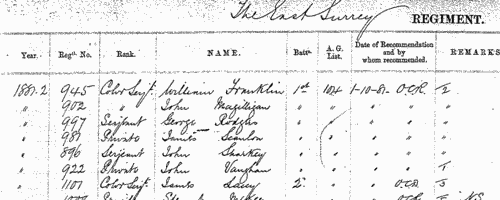 The East Surrey REGIMENT.
Year. Regtl. No. Rank. NAME. Battn. A. G. List. Date of Recommendation and by whom recommended. REMARKS
1881-2 945 Color Serjt. William Franklin 1st 104 1-10-81. O.C.R. 2
" 902 " John Magilligan " " " " "
" 997 Serjeant George Rodgers " " " " "
" 987 Private James Scanlon " " " "
" 896 Serjeant John Sharkey " " " "
" 922 Private John Vaughan " " " " 1
" 1101 Color Serjt. James Lacey 2. " " O.C.R. 3